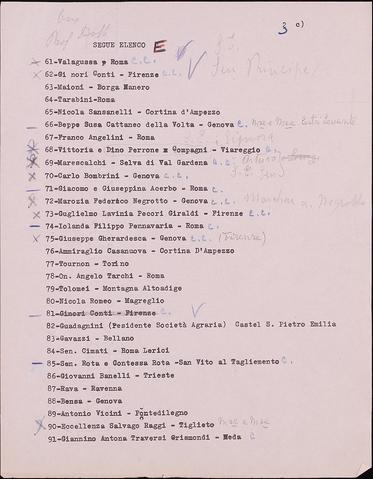 3 c)
SEGUE ELENCO E
61-Valagussa p Roma C.C.
62-Gi nori Conti - Firenze C.C.
63-Maioni - Borga Manero
64-Tarabini-Roma
65-Nicola Sansanelli - Cortina d'Ampezzo
66-Beppe Susa Cattaneo della Volta - Genova C.C.
67-Franco Angelini - Roma
68-Vittoria e Dino Perrone x Compagni - Viareggio C.
69-Marescalchi - Selva di Val Gardena C.
70-Carlo Bombrini - Genova C.C.
71-Giacomo e Giuseppina Acerbo - Roma C.
72-Marozia Federico Negrotto - Genova C.C.
73-Guglielmo Lavinia Pecori Giraldi - Firenze C.C.
74-Iolanda Filippo Pennavaria - Roma C.
75-Giuseppe Gherardesca - Genova C.C. (Firenze)
76-Ammiraglio Casanuova - Cortina D'Ampezzo
77-Tournon - Torino
78-On. Angelo Tarchi - Roma
79-Tolomei - Montagna Altoadige
80-Nicola Romeo - Magreglio
81-Ginori Conti - Firenze C.
82-Guadagnini (Presidente Società Agraria) Castel S. Pietro Emilia
83-Gavazzi - Bellano
84-Sen. Cimati - Roma Lerici
85-Sen. Rota e Contessa Rota -San Vito al Tagliemento C.
86-Giovanni Banelli - Trieste
87-Rava - Ravenna
88-Bensa - Genova
89-Antonio Vicini - Pontedilegno
90-Eccellenza Salvago Raggi - Tiglieto
91-Giannino Antona Traversi Grismondi - Meda C